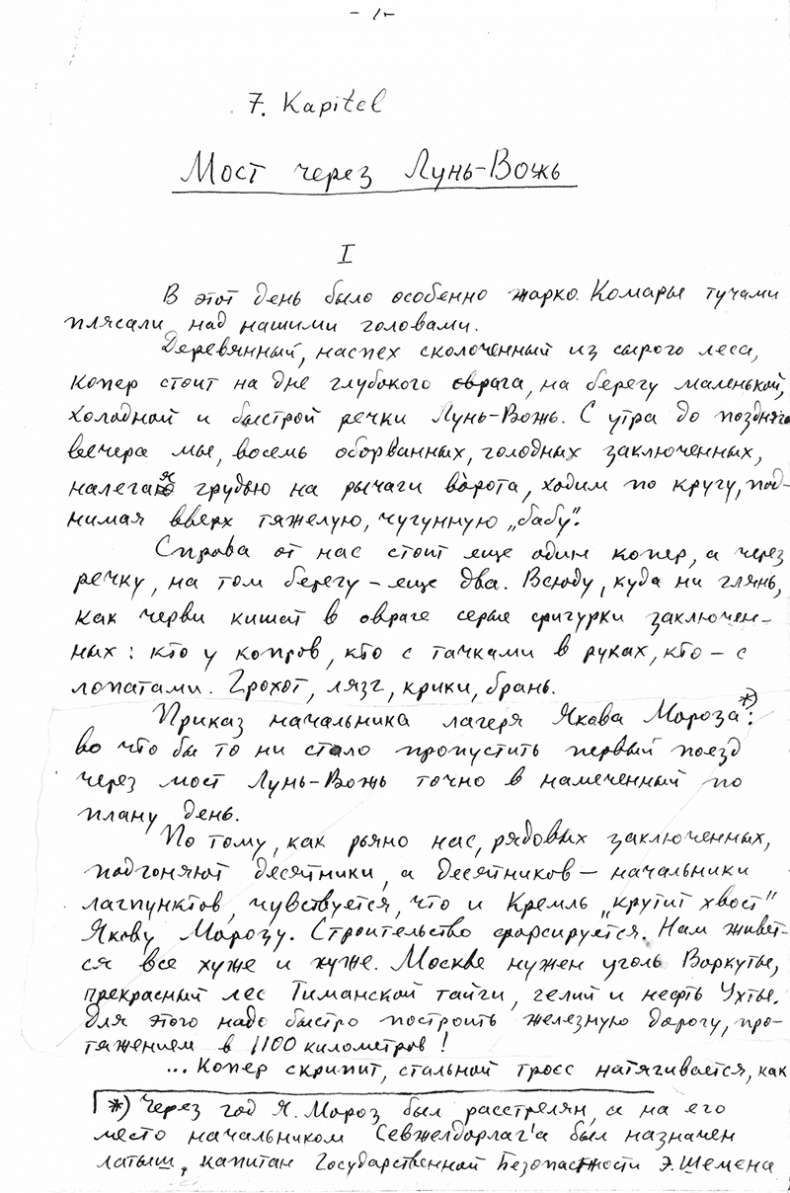 - 1 -
7. Kapitel
Мост через Лунь-Вожь
I
В этот день было особенно жарко. Комары тучами
плясали над нашими головами.
Деревянный, наспех сколоченный из сырого леса,
копер стоит на дне глубокого оврага, на берегу маленькой,
холодной и быстрой речки Лунь-Вожь. С утра до позднего
вечера мы, восемь оборванных, голодных заключенных,
налегая грудью на рычаги ворота, ходим по кругу, под-
нимая вверх тяжелую, чугунную „бабу".
Справа от нас стоит еще один копер, а через
речку, на том берегу – еще два. Всюду, куда ни глянь,
как черви кишат в овраге серые фигурки заключен-
ных: кто у копров, кто с тачками в руках, кто – с
лопатами. Грохот, лязг, крики, брань.
Приказ начальника лагеря Якова Мороза*):
во что бы то ни стало пропустить первый поезд
через мост Лунь-Вожь точно в намеченный по
плану день.
По тому, как рьяно нас, рядовых заключенных,
подгоняют десятники, а десятников – начальники
лагпунктов, чувствуется, что и Кремль „крутит хвост"
Якову Морозу. Строительство форсируется. Нам живет-
ся все хуже и хуже. Москве нужен уголь Воркуты,
прекрасный лес Тиманской тайги, гелий и нефть Ухты.
Для этого надо быстро построить железную дорогу, про-
тяжением в 1100 километров!
... Копер скрипит, стальной тросс натягивается, как
*) Через год Я. Мороз был расстрелян, а на его
место начальником Севжелдорлаг'а был назначен
латыш, капитан Государственной Безопасности Э. Шемена